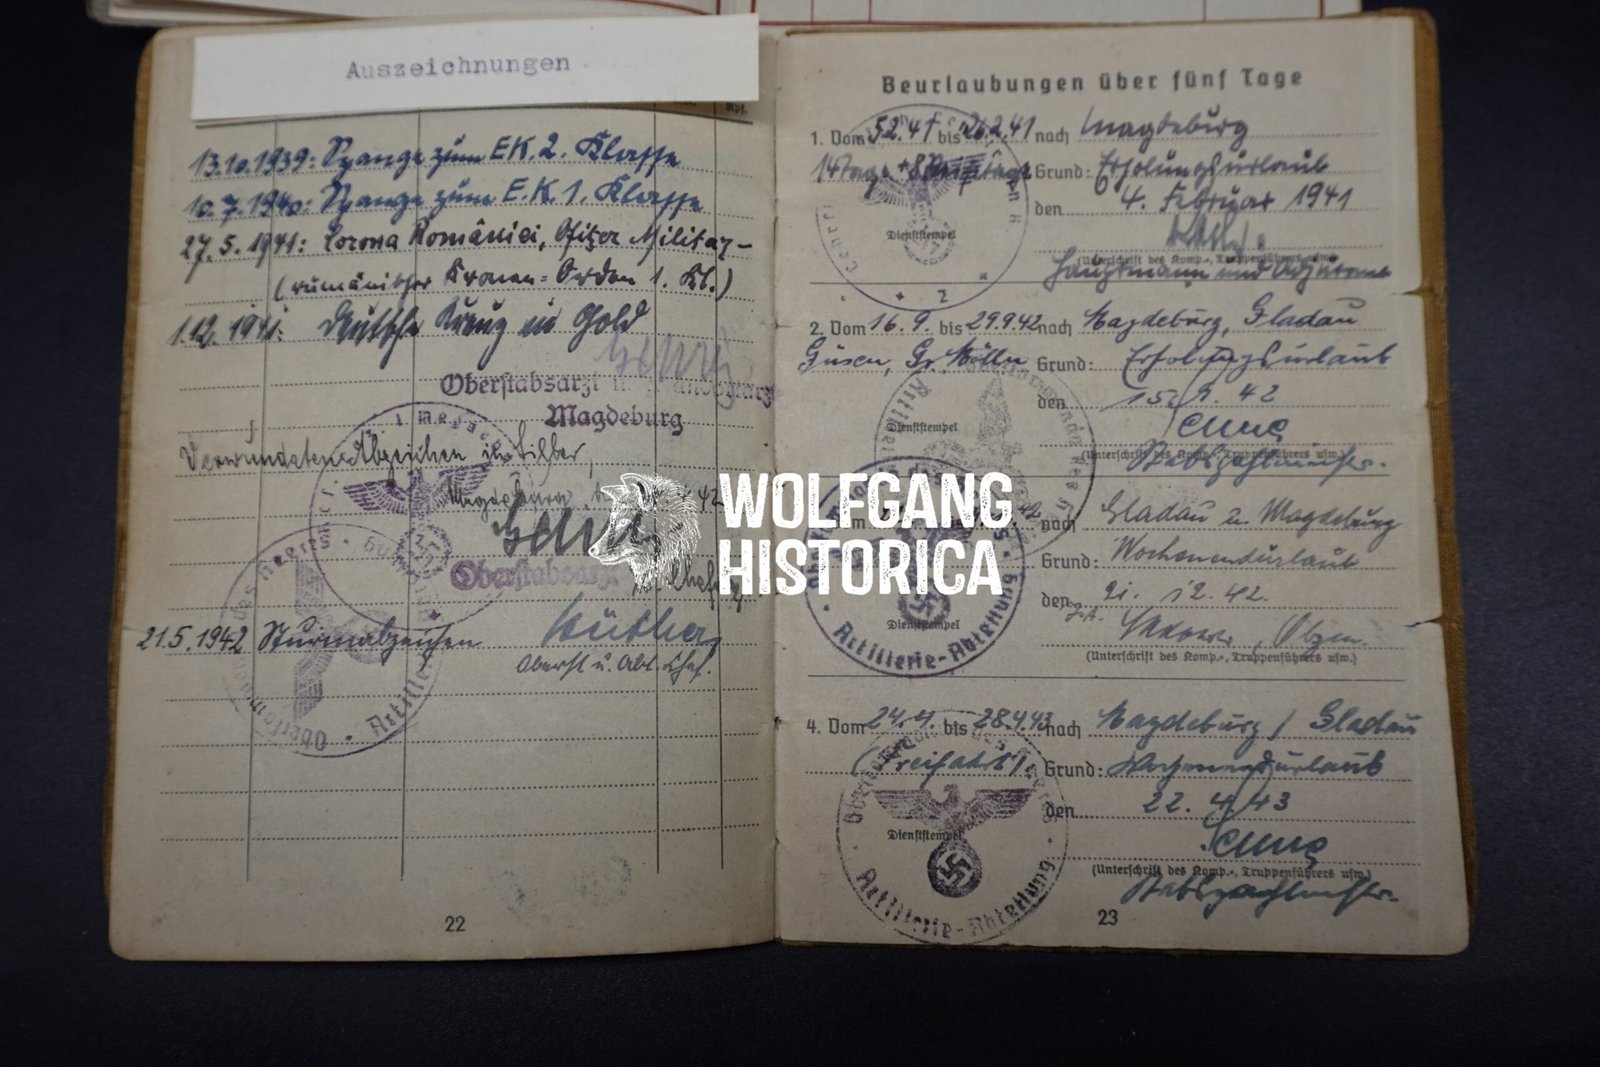 Auszeichnungen
13.10.1939: Spange zum EK. 2. Klasse
10.7.1940: Spange zum E.K. 1. Klasse
27.5.1941: Corona României, Ofițer Militar-
(rumänischer Kronen-Orden 1. Kl.)
1.12.1941: Deutsche Kreuz in Gold
Oberstabsarzt
Magdeburg
Verwundeten-Abzeichen in Silber,
Magdeburg,
Oberstabsarzt
21.5.1942 Sturmabzeichen
Oberst u. Abt. Chef.
Artillerie
22
Beurlaubungen über fünf Tage
1. Vom 5.2.41 bis 26.2.41 nach Magdeburg
14 Tage + 8 Grund: Erholungsurlaub
den 4. Februar 1941
Dienststempel
(Unterschrift des Komp.-, Truppenführers usw.)
Hauptmann und Adjutant
2. Vom 16.9. bis 29.9.42 nach Magdeburg, Gladau
Güsen, Gr. Grund: Erholungsurlaub
den 15.9.42
Dienststempel
(Unterschrift des Komp.-, Truppenführers usw.)
Stabszahlmeister.
nach Gladau u. Magdeburg
Grund: Wochenendurlaub
den 21.12.42.
Dienststempel
(Unterschrift des Komp.-, Truppenführers usw.)
Artillerie-Abteilung
4. Vom 24.4. bis 28.4.43 nach Magdeburg / Gladau
(Freifahrt). Grund: Wochenendurlaub
den 22.4.43
Dienststempel
(Unterschrift des Komp.-, Truppenführers usw.)
Stabszahlmeister.
Artillerie-Abteilung
23
WOLFGANG
HISTORICA